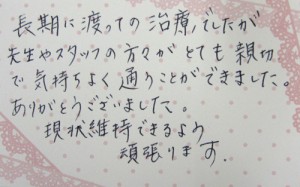 長期に渡っての治療でしたが
先生やスタッフの方々がとても親切
で気持ちよく通うことができました。
ありがとうございました。
現状維持できるよう
頑張ります.